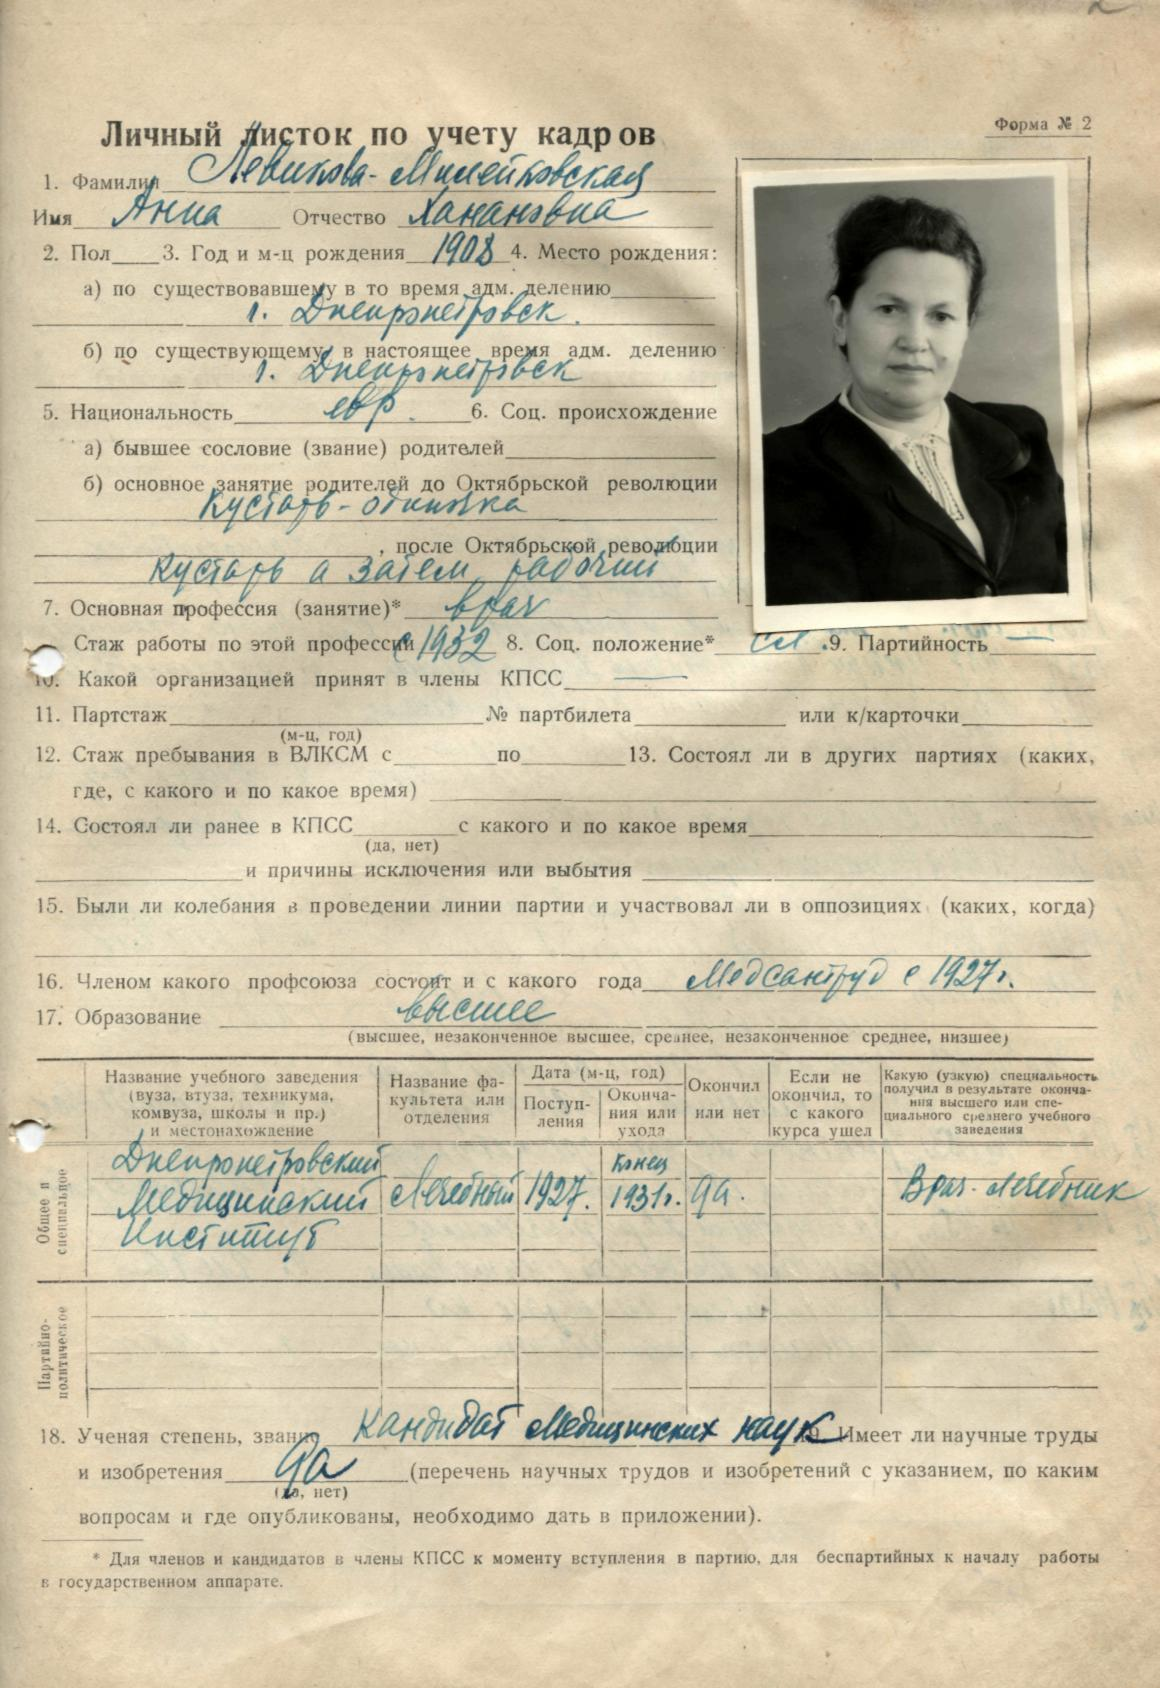 Личный листок по учету кадров
Форма № 2
1. Фамилия Левикова-Милейковская
Имя Анна Отчество Ханановна
2. Пол 3. Год и м-ц рождения 1908 4. Место рождения:
а) по существовавшему в то время адм. делению
г. Днепропетровск.
б) по существующему в настоящее время адм. делению
г. Днепропетровск
5. Национальность евр. 6. Соц. происхождение
а) бывшее сословие (звание) родителей
б) основное занятие родителей до Октябрьской революции
Кустарь-одиночка
, после Октябрьской революции
кустарь а затем рабочий
7. Основная профессия (занятие)* врач
Стаж работы по этой профессии с 1932 8. Соц. положение* сл. 9. Партийность —
10. Какой организацией принят в члены КПСС —
11. Партстаж № партбилета или к/карточки
(м-ц, год)
12. Стаж пребывания в ВЛКСМ с по 13. Состоял ли в других партиях (каких,
где, с какого и по какое время)
14. Состоял ли ранее в КПСС с какого и по какое время
(да, нет)
и причины исключения или выбытия
15. Были ли колебания в проведении линии партии и участвовал ли в оппозициях (каких, когда)
16. Членом какого профсоюза состоит и с какого года Медсантруд с 1927г.
17. Образование высшее
(высшее, незаконченное высшее, среднее, незаконченное среднее, низшее)
Название учебного заведения (вуза, втуза, техникума, комвуза, школы и пр.) и местонахождение
Название факультета или отделения
Дата (м-ц, год)
Поступления
Окончания или ухода
Окончил или нет
Если не окончил, то с какого курса ушел
Какую (узкую) специальность получил в результате окончания высшего или специального среднего учебного заведения
Общее и специальное
Днепропетровский конец
Медицинский Лечебный 1927. 1931г. да. Врач-лечебник
Институт
Партийно-политическое
18. Ученая степень, звание Кандидат Медицинских наук 19. Имеет ли научные труды
и изобретения да (перечень научных трудов и изобретений с указанием, по каким
(да, нет)
вопросам и где опубликованы, необходимо дать в приложении).
* Для членов и кандидатов в члены КПСС к моменту вступления в партию, для беспартийных к началу работы
в государственном аппарате.